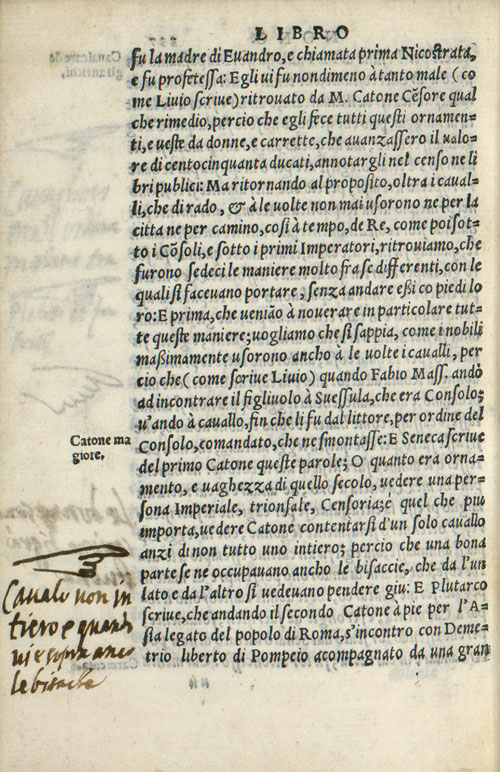 LIBRO
fu la madre di Euandro, e chiamata prima Nicostrata,
e fu profetessa: Egli ui fu nondimeno à tanto male (co
me Liuio scriue) ritrouato da M. Catone Cẽsore qual
che rimedio, percio che egli fece tutti questi ornamen-
ti, e ueste da donne, e carrette, che auanzassero il ualo-
re di centocinquanta ducati, annotargli nel censo ne li
bri publici: Ma ritornando al proposito, oltra i caual-
li, che di rado, & à le uolte non mai usorono ne per la
citta ne per camino, così à tempo, de Re, come poi sot-
to i Cõsoli, e sotto i primi Imperatori, ritrouiamo, che
furono sedeci le maniere molto fra se differenti, con le
quali si faceuano portare, senza andare eßi co piedi lo
ro: E prima, che uenião à nouerare in particolare tut-
te queste maniere; uogliamo che si sappia, come i nobili
maßimamente usorono ancho à le uolte i caualli, per
cio che (come scriue Liuio) quando Fabio Mass. andò
ad incontrare il figliuolo à Suessula, che era Consolo;
u'andò à cauallo, fin che li fu dal littore, per ordine del
Catone ma
giore,
Consolo, comandato, che ne smontasse: E Seneca scriue
del primo Catone queste parole; O quanto era orna-
mento, e uaghezza di quello secolo, uedere una per-
sona Imperiale, trionfale, Censoria; e quel che piu
importa, uedere Catone contentarsi d'un solo cauallo
anzi di non tutto uno intiero; percio che una bona
parte se ne occupauano ancho le bisaccie, che da l'un
lato e da l'altro si uedeuano pendere giu: E Plutarco
scriue, che andando il secondo Catone à pie per l'A-
sia legato del popolo di Roma, s'incontro con Deme-
trio liberto di Pompeio acompagnato da una gran
Cauallo non in
tiero e
le bisacie